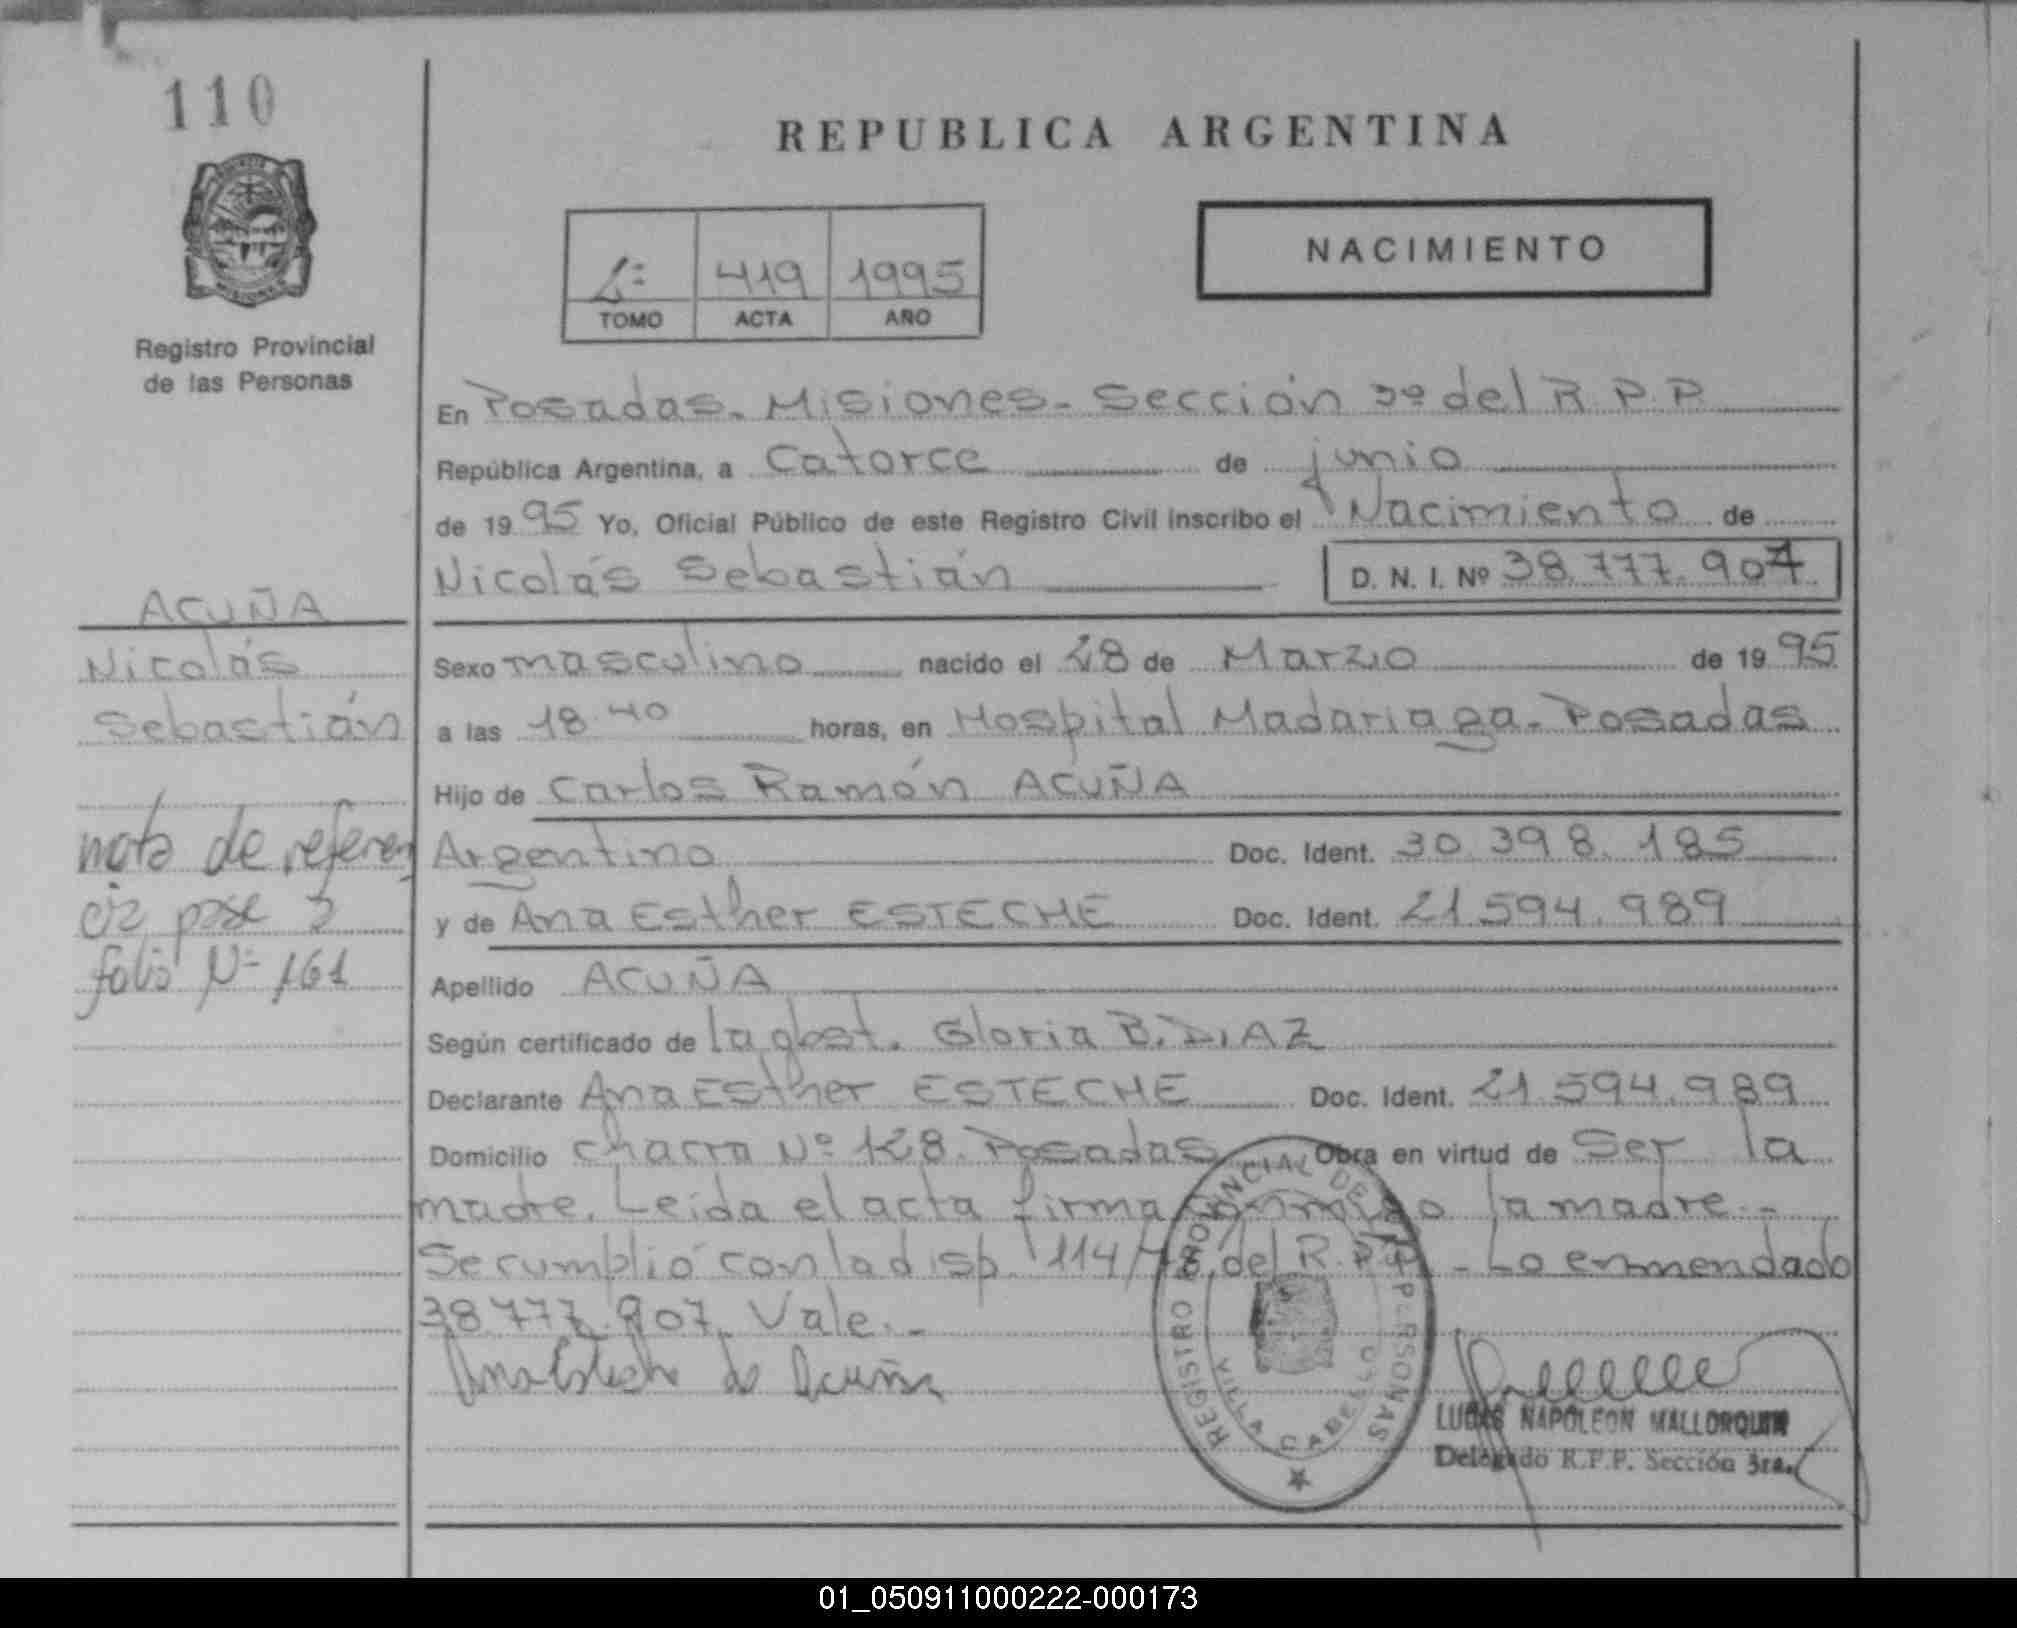 110
REPUBLICA ARGENTINA
NACIMIENTO
419 1995
TOMO ACTA AÑO
Registro Provincial
de las Personas
En Posadas. Misiones. Sección 3º del R.P.P.
República Argentina, a Catorce de junio
de 1995 Yo, Oficial Público de este Registro Civil inscribo el Nacimiento de
Nicolás Sebastián D. N. I. Nº 38.777.907
ACUÑA
Nicolás
Sebastián
Sexo masculino nacido el 28 de Marzo de 1995
a las 18.40 horas, en Hospital Madariaga. Posadas
Hijo de Carlos Ramón ACUÑA
Argentino Doc. Ident. 30.398.185
y de Ana Esther ESTECHE Doc. Ident. 21.594.989
nota de referen
cia pase a
folio Nº 161
Apellido ACUÑA
Según certificado de la obst. Gloria B. DIAZ
Declarante Ana Esther ESTECHE Doc. Ident. 21.594.989
Domicilio chacra Nº 128. Posadas Obra en virtud de Ser la
madre. Leida el acta firma conmigo la madre.-
Se cumplió con la disp. 114/78 del R.P.P. - Lo enmendado
38.777.907. Vale.-
Ana Esteche de Acuña
REGISTRO PROVINCIAL DE LAS PERSONAS
VILLA CABELLO
LUCAS NAPOLEON MALLORQUIN
Delegado R.P.P. Sección 3ra.
01_050911000222-000173